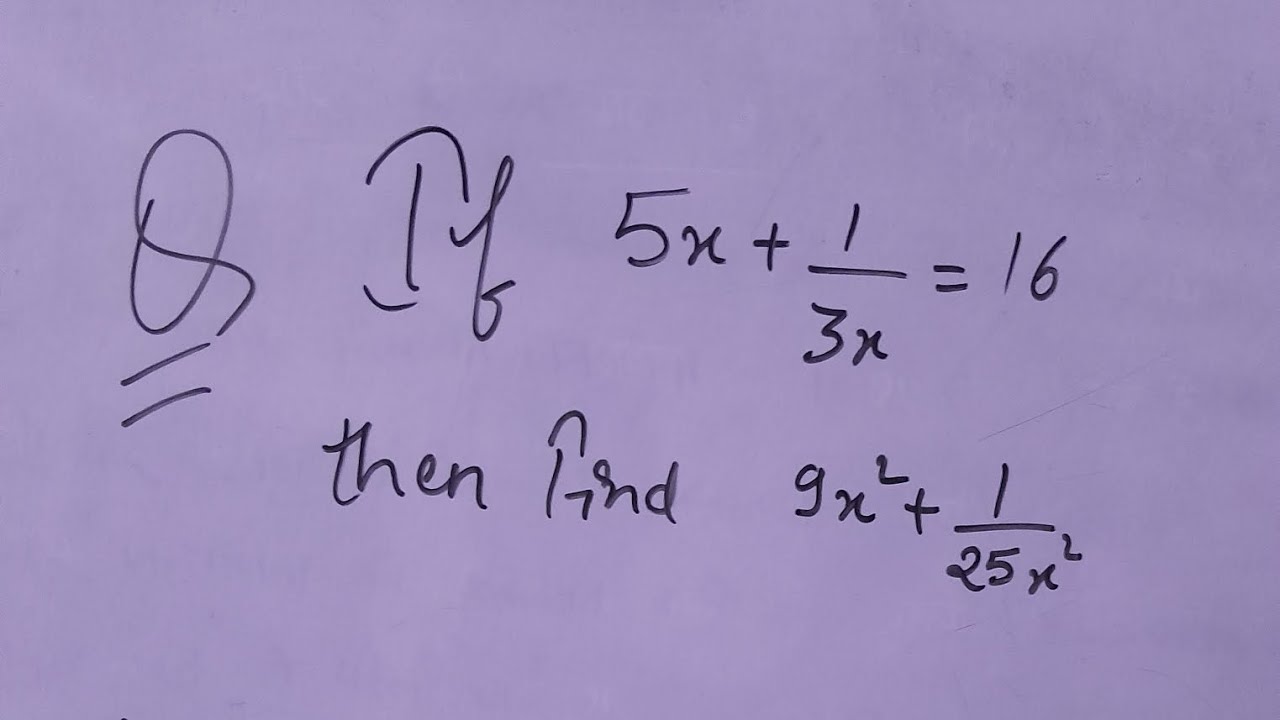 Q If 5x + 1/3x = 16
then find 9x² + 1/25x²